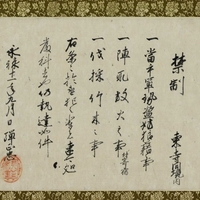 禁制　東寺境内
一当手軍勢濫妨狼藉事
一陣取放火之事
一伐採竹木之事
右条々於違犯之輩者速可処
厳科者也仍執達如件
永禄十一年九月日　弾正忠